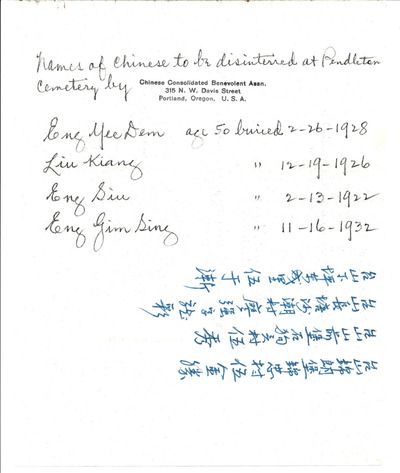 Names of Chinese to be disinterred at Pendleton
Cemetery by
Chinese Consolidated Benevolent Assn.
315 N. W. Davis Street
Portland, Oregon, U. S. A.
Eng Yee Dem age 50 buried 2-26-1928
Liu Kiang " 12-19-1926
Eng Siu " 2-13-1922
Eng Gim Sing " 11-16-1932
台山下坪萬歲里伍于漸
台山長隆 潮村廖强字
台山 堡石 村伍秀
台山錦 堡錦 村伍金